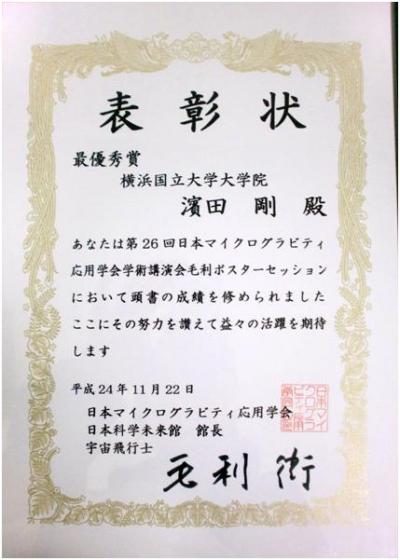 表彰状
最優秀賞
横浜国立大学大学院
濱田 剛 殿
あなたは第26回日本マイクログラビティ
応用学会学術講演会毛利ポスターセッション
において頭書の成績を修められました
ここにその努力を讃えて益々の活躍を期待
します
平成24年11月22日
日本マイクログラビティ応用学会
日本科学未来館 館長
宇宙飛行士
毛利 衛